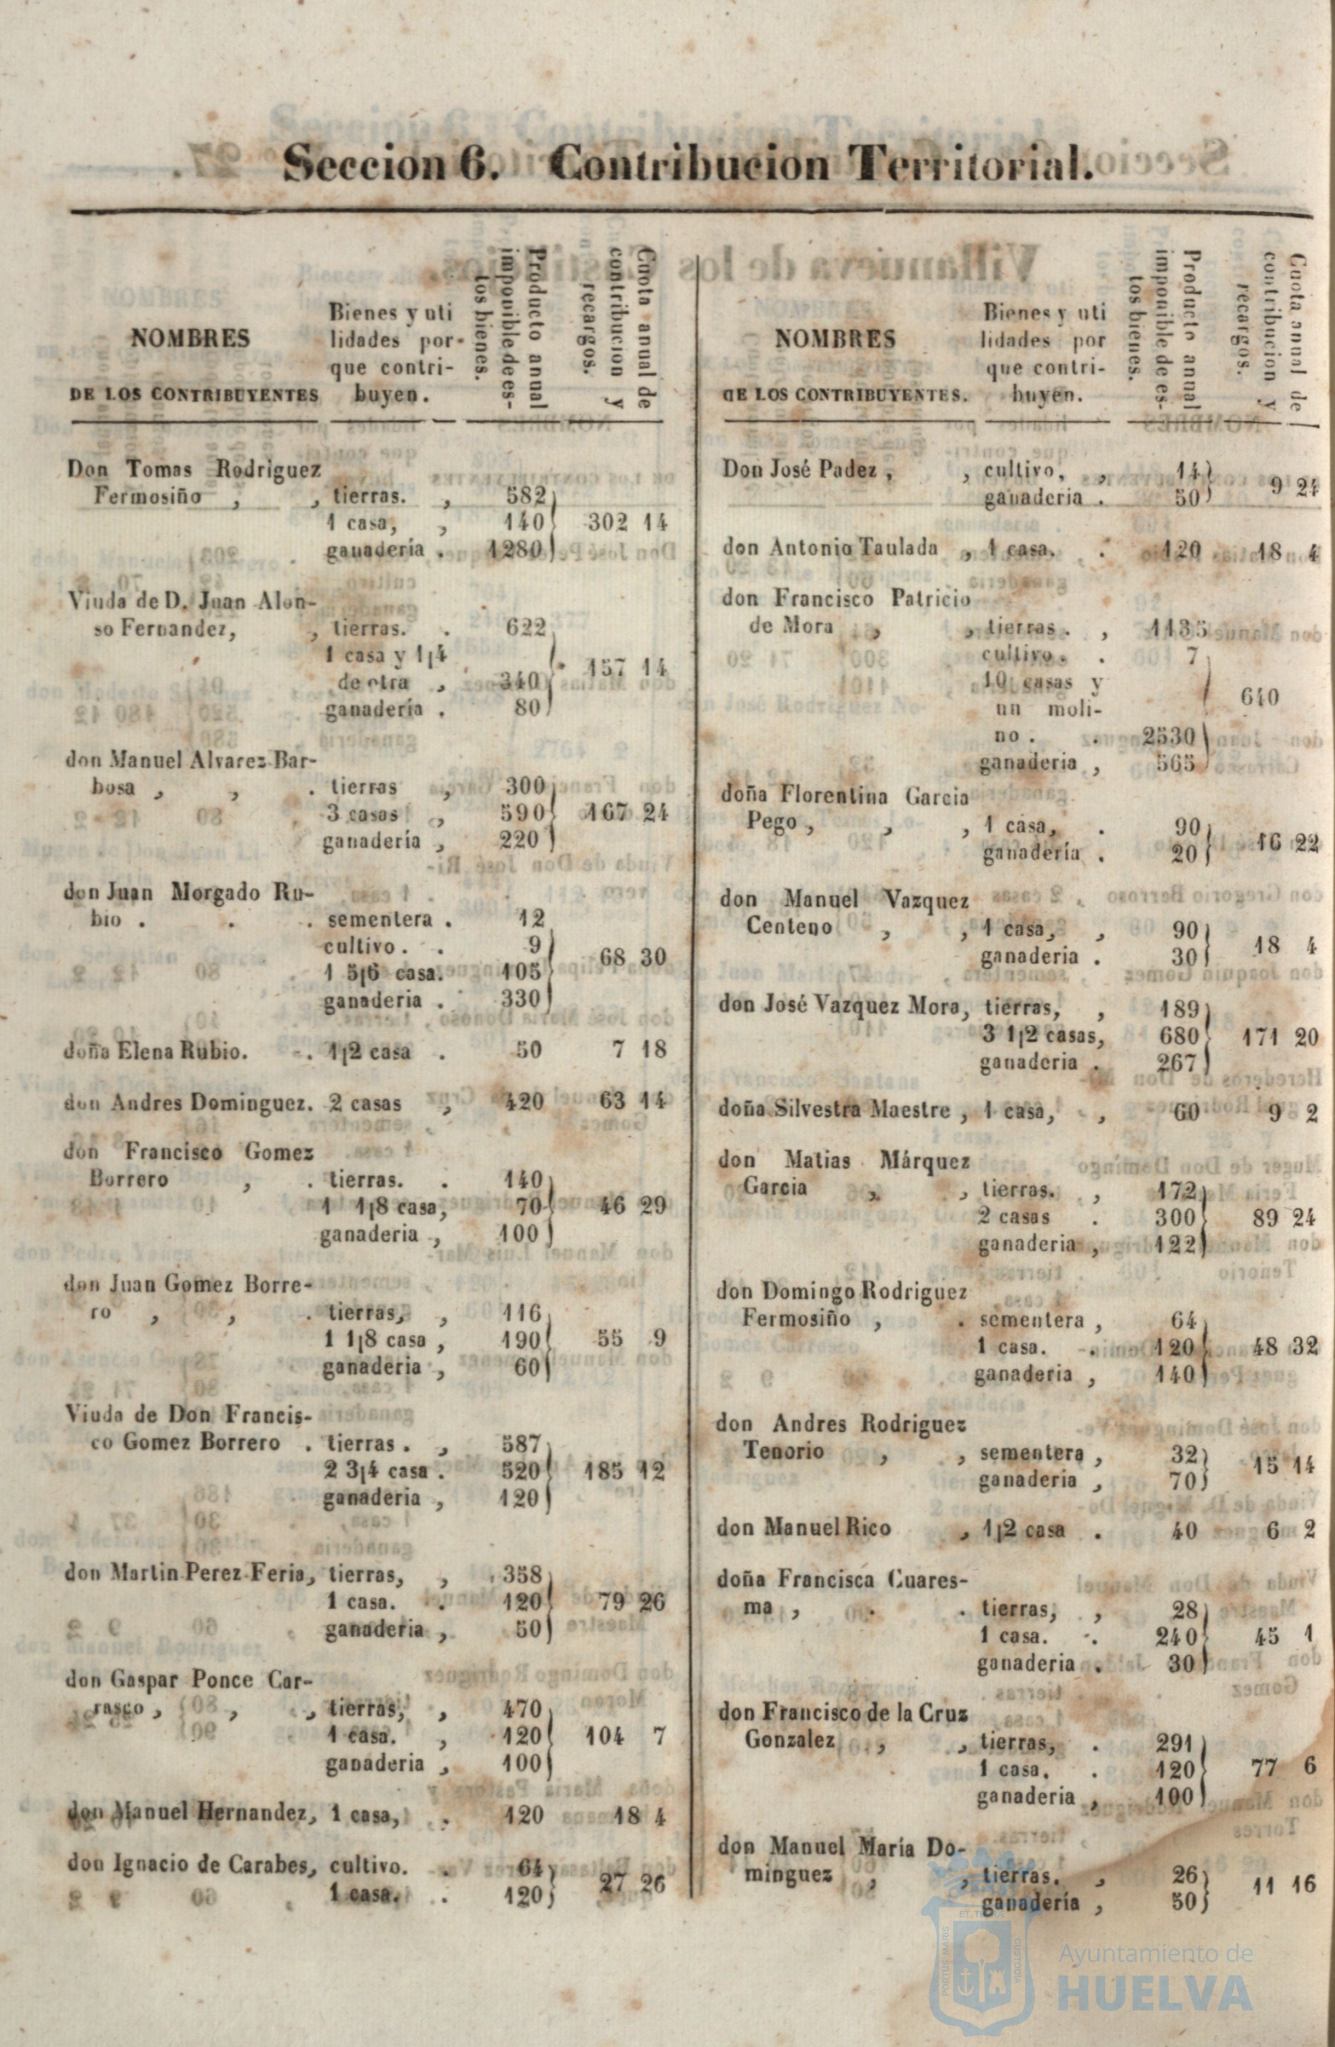 Seccion 6. Contribucion Territorial.
NOMBRES
DE LOS CONTRIBUYENTES
Bienes y uti
lidades por-
que contri-
buyen.
Producto anual
imponible de es-
tos bienes.
Cuota anual de
contribucion y
recargos.
Don Tomas Rodriguez
Fermosiño , , tierras. , 582
1 casa, , 140 302 14
ganadería . 1280
Viuda de D. Juan Alon-
so Fernandez, , tierras. . 622
1 casa y 1¡4
de otra , 340 157 14
ganadería . 80
don Manuel Alvarez Bar-
bosa , , . tierras , 300
3 casas , 590 167 24
ganadería , 220
don Juan Morgado Ru-
bio . . . sementera . 12
cultivo. . 9
1 5¡6 casa. 105 68 30
ganaderia . 330
doña Elena Rubio. . 1¡2 casa . 50 7 18
don Andres Dominguez. 2 casas , 420 63 14
don Francisco Gomez
Borrero , . tierras. . 140
1 1¡8 casa, 70 46 29
ganaderia , 100
don Juan Gomez Borre-
ro , , . tierras, , 116
1 1¡8 casa , 190 55 9
ganaderia , 60
Viuda de Don Francis-
co Gomez Borrero . tierras . , 587
2 3¡4 casa . 520 185 12
ganaderia , 120
don Martin Perez Feria, tierras, , 358
1 casa. . 120 79 26
ganaderia , 50
don Gaspar Ponce Car-
rasco , , , tierras, , 470
1 casa. , 120 104 7
ganaderia , 100
don Manuel Hernandez, 1 casa, . 120 18 4
don Ignacio de Carabes, cultivo. . 64
1 casa. . 120 27 26
NOMBRES
DE LOS CONTRIBUYENTES.
Bienes y uti
lidades por
que contri-
buyen.
Producto anual
imponible de es-
tos bienes.
Cuota anual de
contribucion y
recargos.
Don José Padez , , cultivo, , 14
ganaderia . 50 9 24
don Antonio Taulada , 1 casa. . 120 18 4
don Francisco Patricio
de Mora , , tierras . , 1135
cultivo. . 7
10 casas y
un moli-
no . . 2530 640
ganaderia , 565
doña Florentina Garcia
Pego , , , 1 casa, . 90
ganadería . 20 16 22
don Manuel Vazquez
Centeno , , 1 casa, , 90
ganadería . 30 18 4
don José Vazquez Mora, tierras, , 189
3 1¡2 casas, 680 171 20
ganaderia . 267
doña Silvestra Maestre , 1 casa, , 60 9 2
don Matias Márquez
Garcia , , tierras. , 172
2 casas . 300 89 24
ganaderia , 122
don Domingo Rodriguez
Fermosiño , . sementera , 64
1 casa. . 120 48 32
ganaderia , 140
don Andres Rodriguez
Tenorio , , sementera , 32
ganaderia , 70 15 14
don Manuel Rico , 1¡2 casa . 40 6 2
doña Francisca Cuares-
ma , . . tierras, , 28
1 casa. . 240 45 1
ganaderia . 30
don Francisco de la Cruz
Gonzalez , , tierras, . 291
1 casa. . 120 77 6
ganaderia , 100
don Manuel María Do-
minguez , , tierras. , 26
ganadería , 50 11 16
Ayuntamiento de
HUELVA